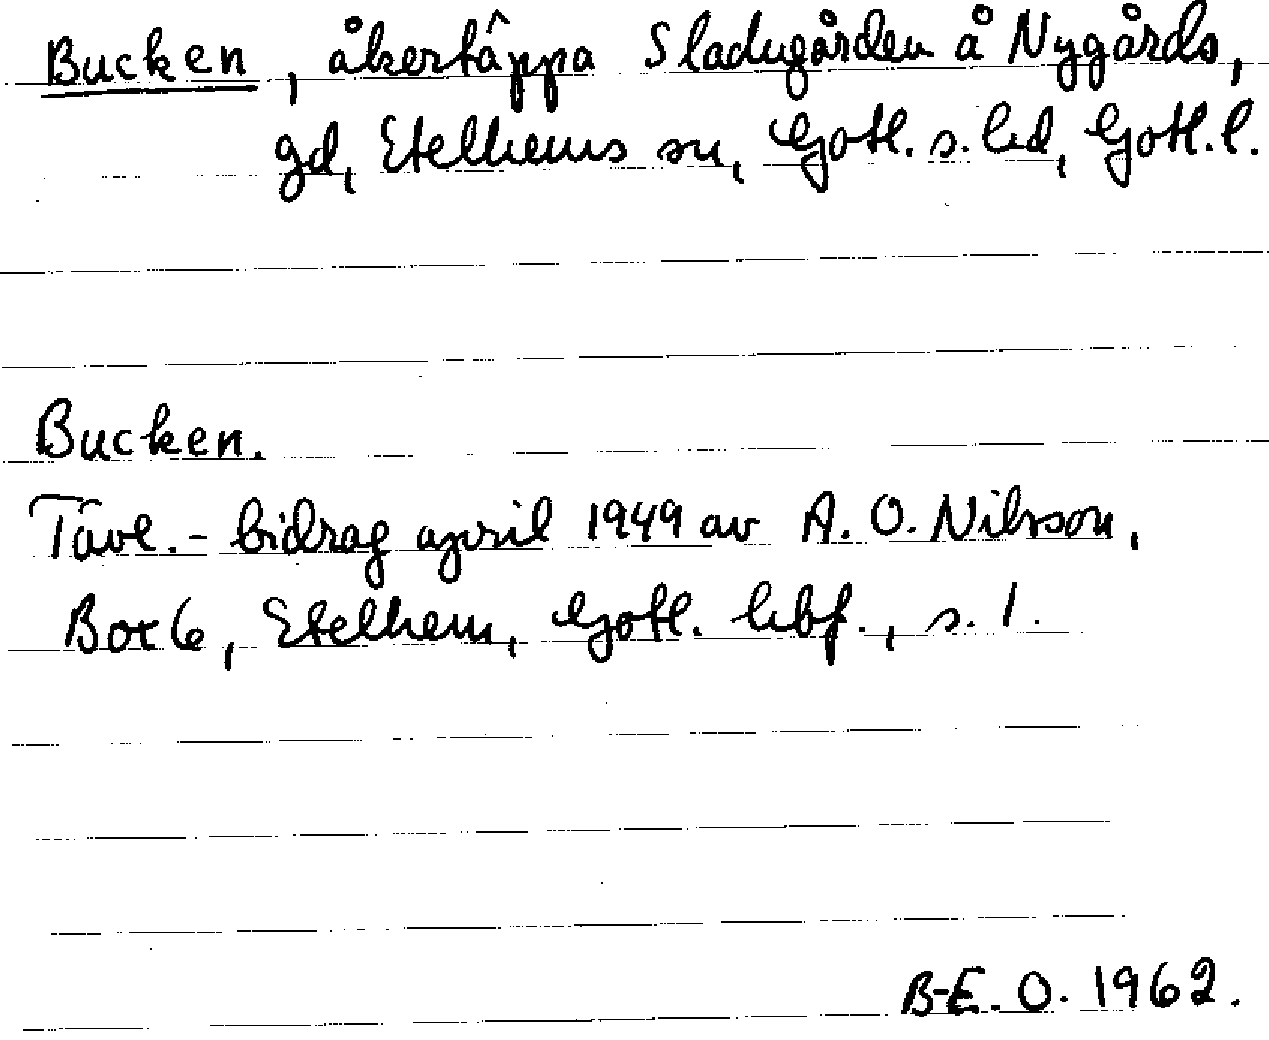 Bucken, åkertäppa Sladugården å Nygårds,
gd, Etelhems sn, Gotl. s. hd, Gotl. l.
Bucken.
Tävl.-bidrag april 1949 av A. O. Nilsson,
Box 6, Etelhem, Gotl. hbf., s. 1.
B-E. O. 1962.